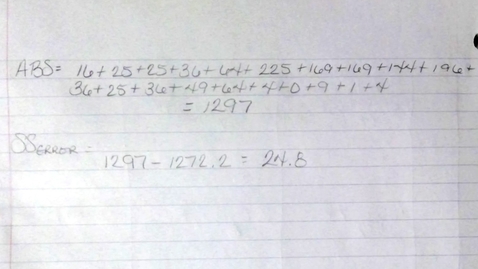 ABS= 16+25+25+36+64+225+169+169+144+196+
36+25+36+49+64+4+0+9+1+4
= 1297
SS ERROR =
1297-1272.2 = 24.8